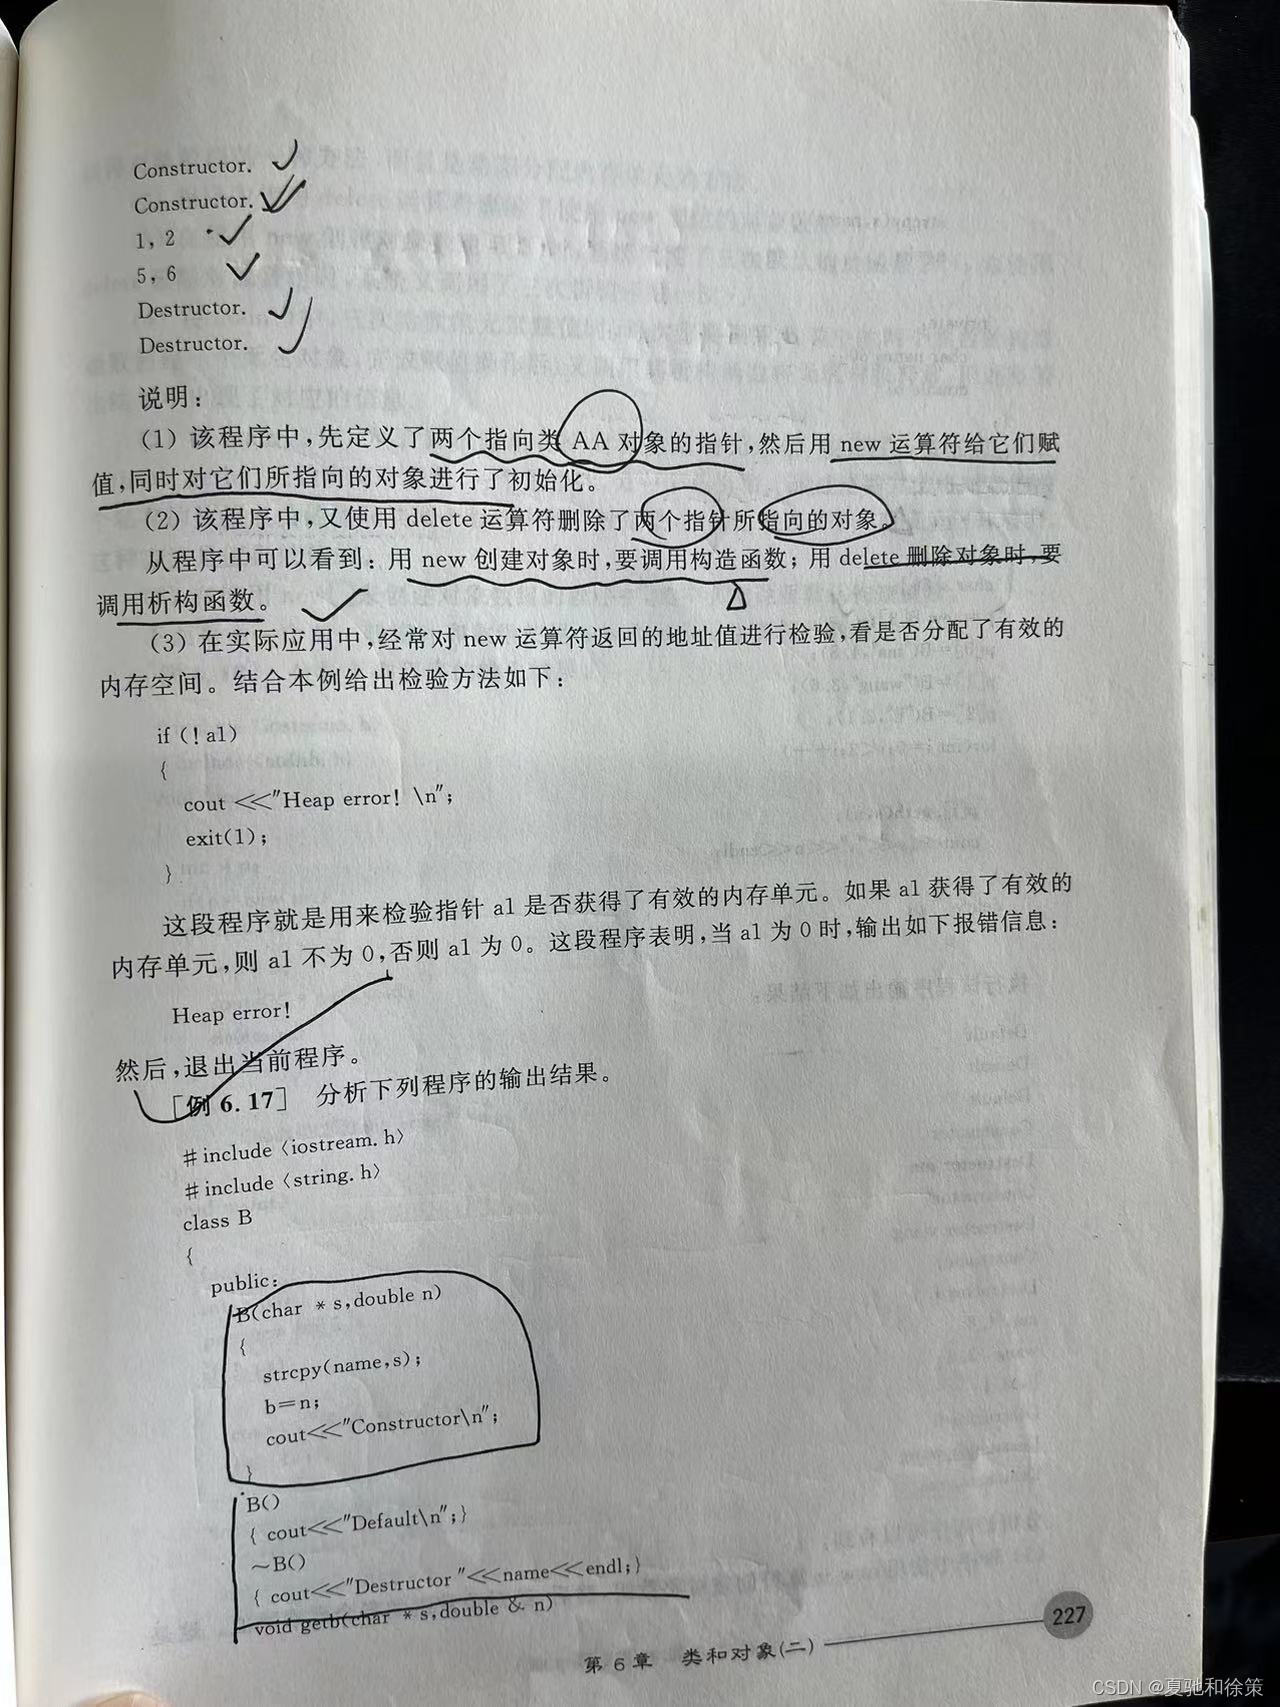 Constructor.
Constructor.
1, 2
5, 6
Destructor.
Destructor.
说明:
(1) 该程序中,先定义了两个指向类 AA 对象的指针,然后用 new 运算符给它们赋
值,同时对它们所指向的对象进行了初始化。
(2) 该程序中,又使用 delete 运算符删除了两个指针所指向的对象。
从程序中可以看到: 用 new 创建对象时,要调用构造函数; 用 delete 删除对象时,要
调用析构函数。
(3) 在实际应用中,经常对 new 运算符返回的地址值进行检验,看是否分配了有效的
内存空间。结合本例给出检验方法如下:
if (!a1)
{
cout <<"Heap error! \n";
exit(1);
}
这段程序就是用来检验指针 a1 是否获得了有效的内存单元。如果 a1 获得了有效的
内存单元,则 a1 不为 0,否则 a1 为 0。这段程序表明,当 a1 为 0 时,输出如下报错信息:
Heap error!
然后,退出当前程序。
[例 6.17] 分析下列程序的输出结果。
#include <iostream.h>
#include <string.h>
class B
{
public:
B(char * s,double n)
{
strcpy(name,s);
b=n;
cout<<"Constructor\n";
}
B()
{ cout<<"Default\n";}
~B()
{ cout<<"Destructor "<<name<<endl;}
void getb(char * s,double & n)
第 6 章 类和对象(二)
227
CSDN @夏驰和徐策